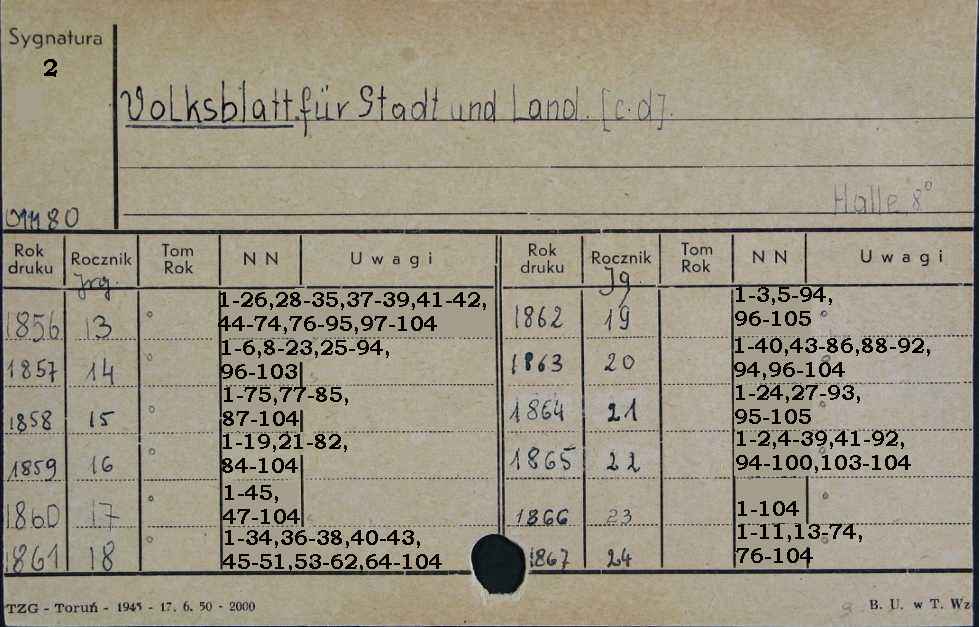 Sygnatura
2
Volksblatt für Stadt und Land. [c.d].
Halle 8°
01180
Rok druku Rocznik Tom Rok N N Uwagi Rok druku Rocznik Tom Rok N N Uwagi
Jrg. Jg.
1856 13 1-26,28-35,37-39,41-42,
44-74,76-95,97-104
1857 14 1-6,8-23,25-94,
96-103
1858 15 1-75,77-85,
87-104
1859 16 1-19,21-82,
84-104
1860 17 1-45,
47-104
1861 18 1-34,36-38,40-43,
45-51,53-62,64-104
1862 19 1-3,5-94,
96-105
1863 20 1-40,43-86,88-92,
94,96-104
1864 21 1-24,27-93,
95-105
1865 22 1-2,4-39,41-92,
94-100,103-104
1866 23 1-104
1867 24 1-11,13-74,
76-104
TZG - Toruń - 1945 - 17. 6. 50 - 2000
B. U. w T. Wz